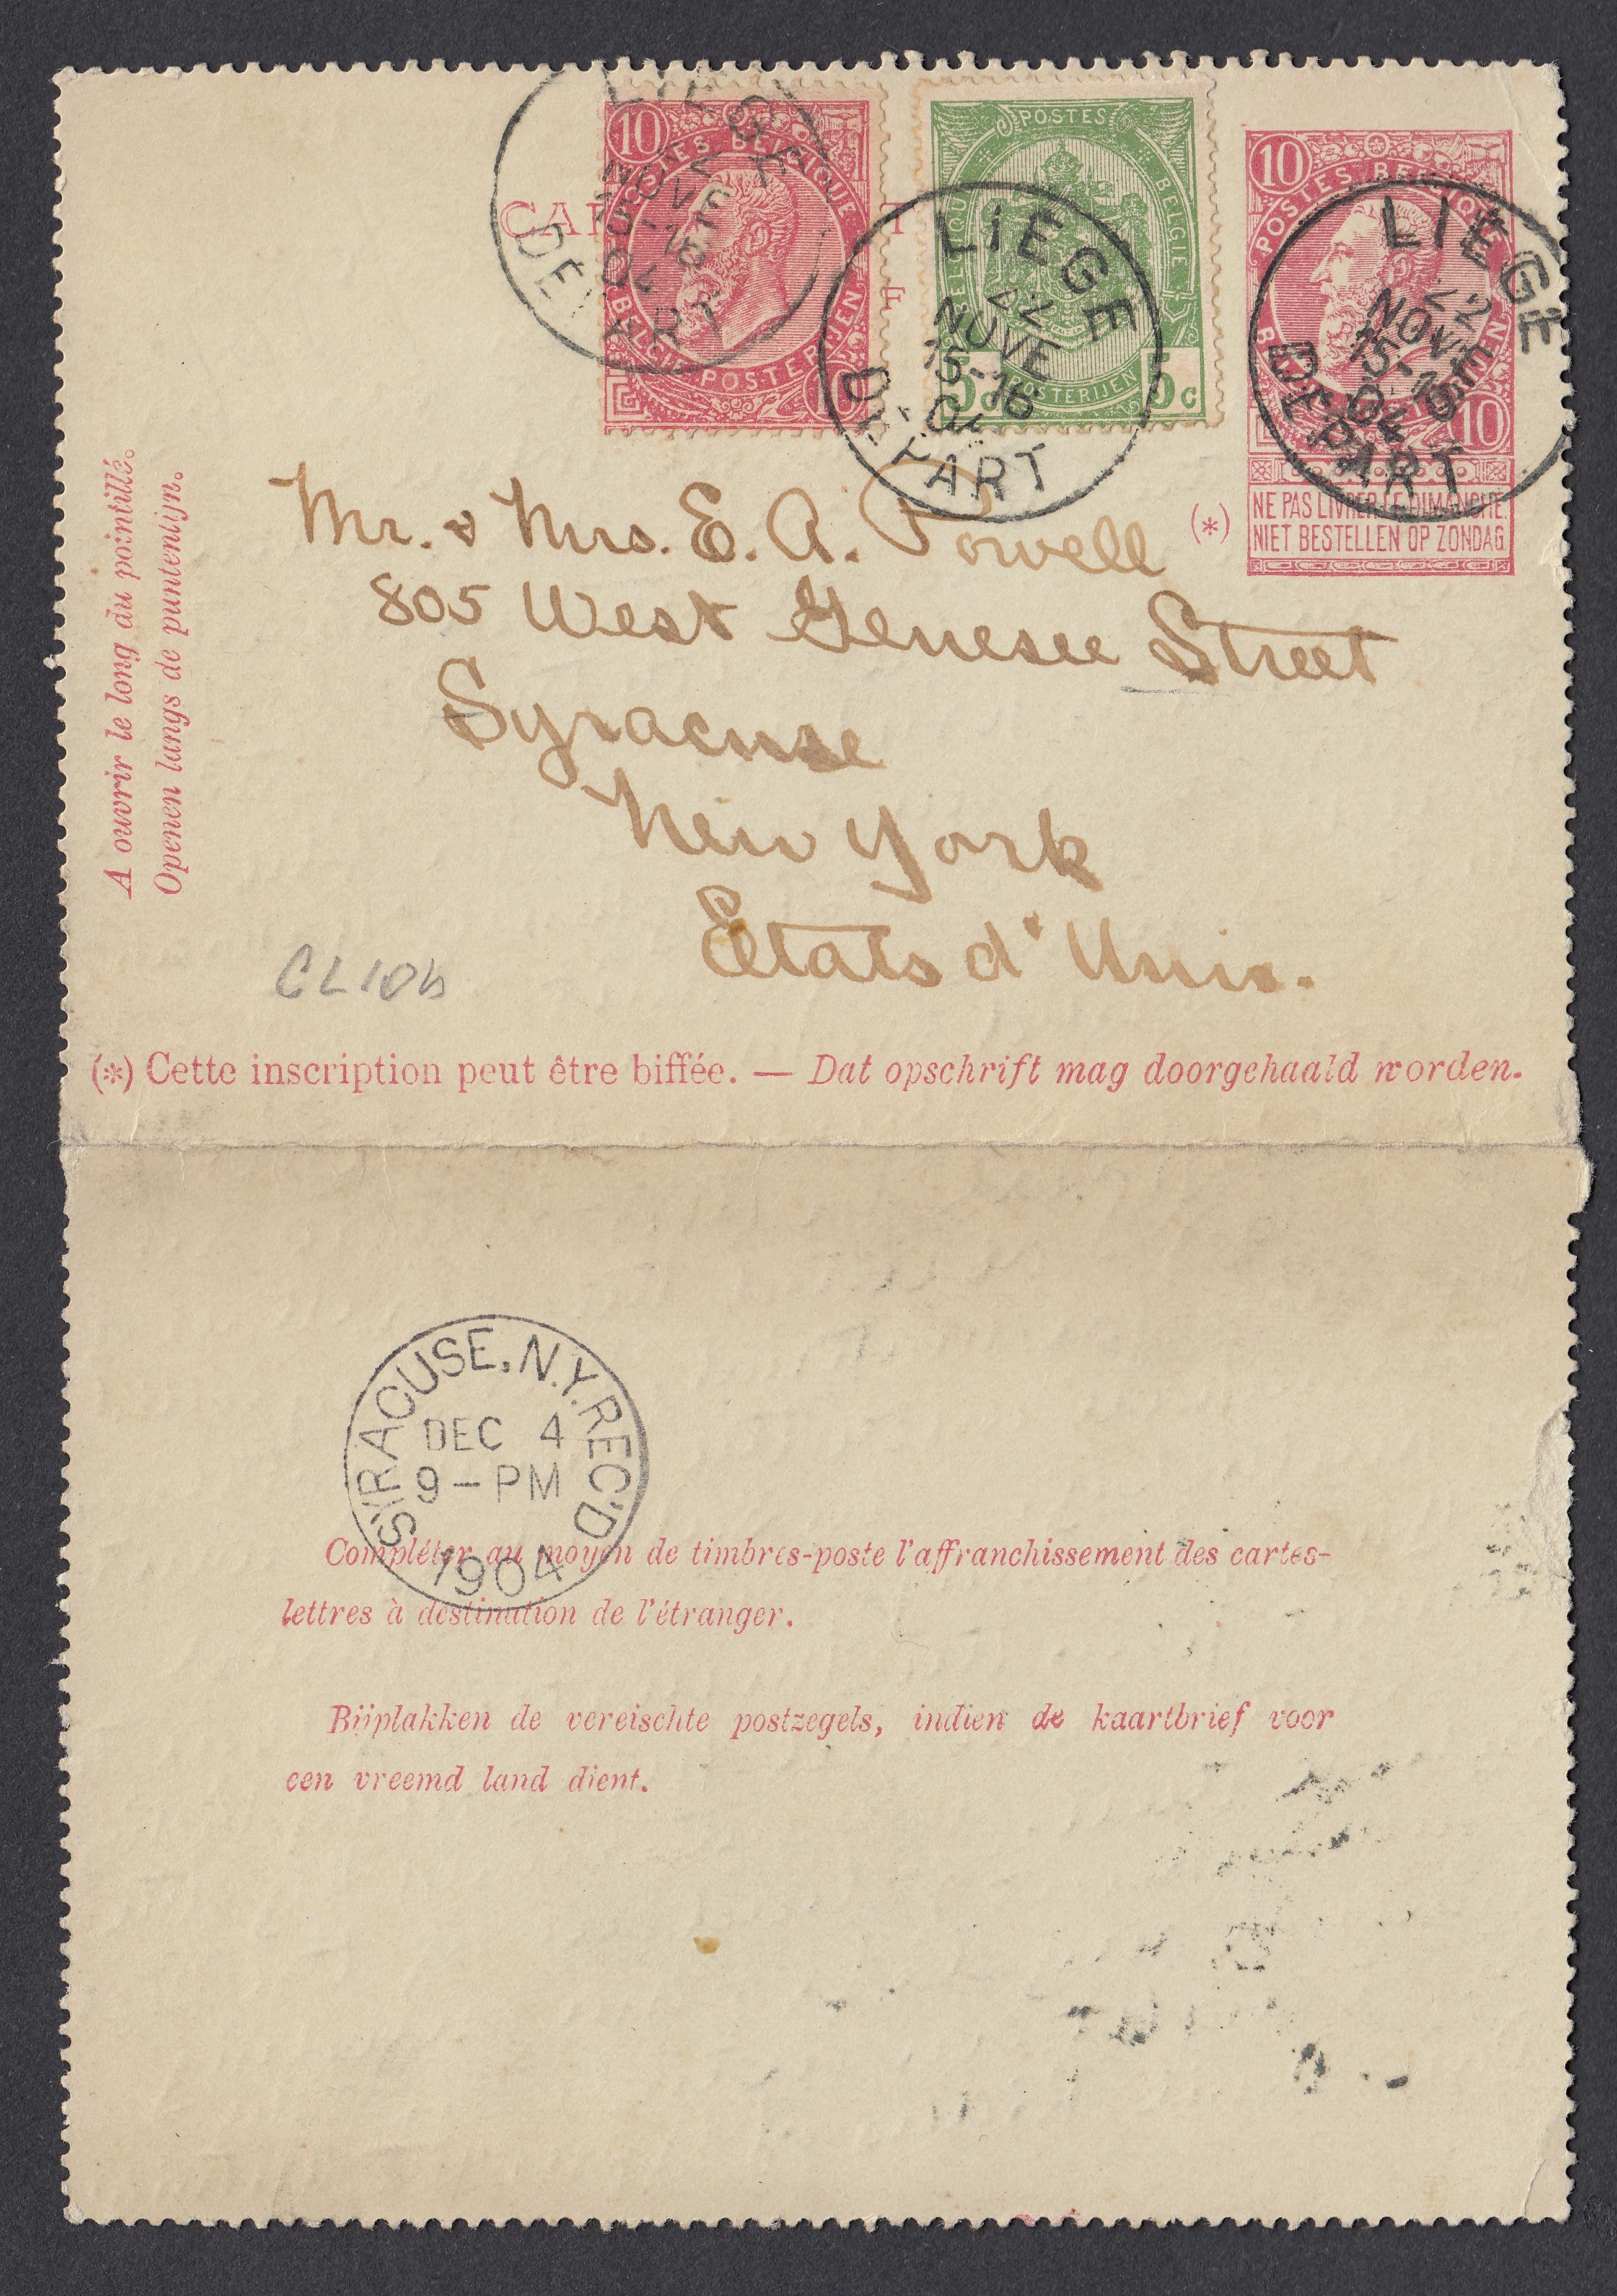 10
POSTES BELGIQUE
BELGIE POSTERIJEN
10
LIEGE
NOVE
DEPART
POSTES
BELGIQUE
BELGIE
POSTERIJEN
5c 5c
LIEGE
22
NOVE
15-16
04
DEPART
10
POSTES BELGIQUE
10
LIEGE
22
NOVE
15-16
04
DEPART
(*)
NE PAS LIVRER LE DIMANCHE.
NIET BESTELLEN OP ZONDAG.
A ouvrir le long du pointillé.
Openen langs de puntenlijn.
Mr. & Mrs. E. A. Powell
805 West Genesee Street
Syracuse
New York
Etats d' Unis.
CL10b
(*) Cette inscription peut être biffée. — Dat opschrift mag doorgehaald worden.
SYRACUSE, N.Y. REC'D
DEC 4
9-PM
1904
Compléter au moyen de timbres-poste l'affranchissement des cartes-
lettres à destination de l'étranger.
Bijplakken de vereischte postzegels, indien de kaartbrief voor
een vreemd land dient.